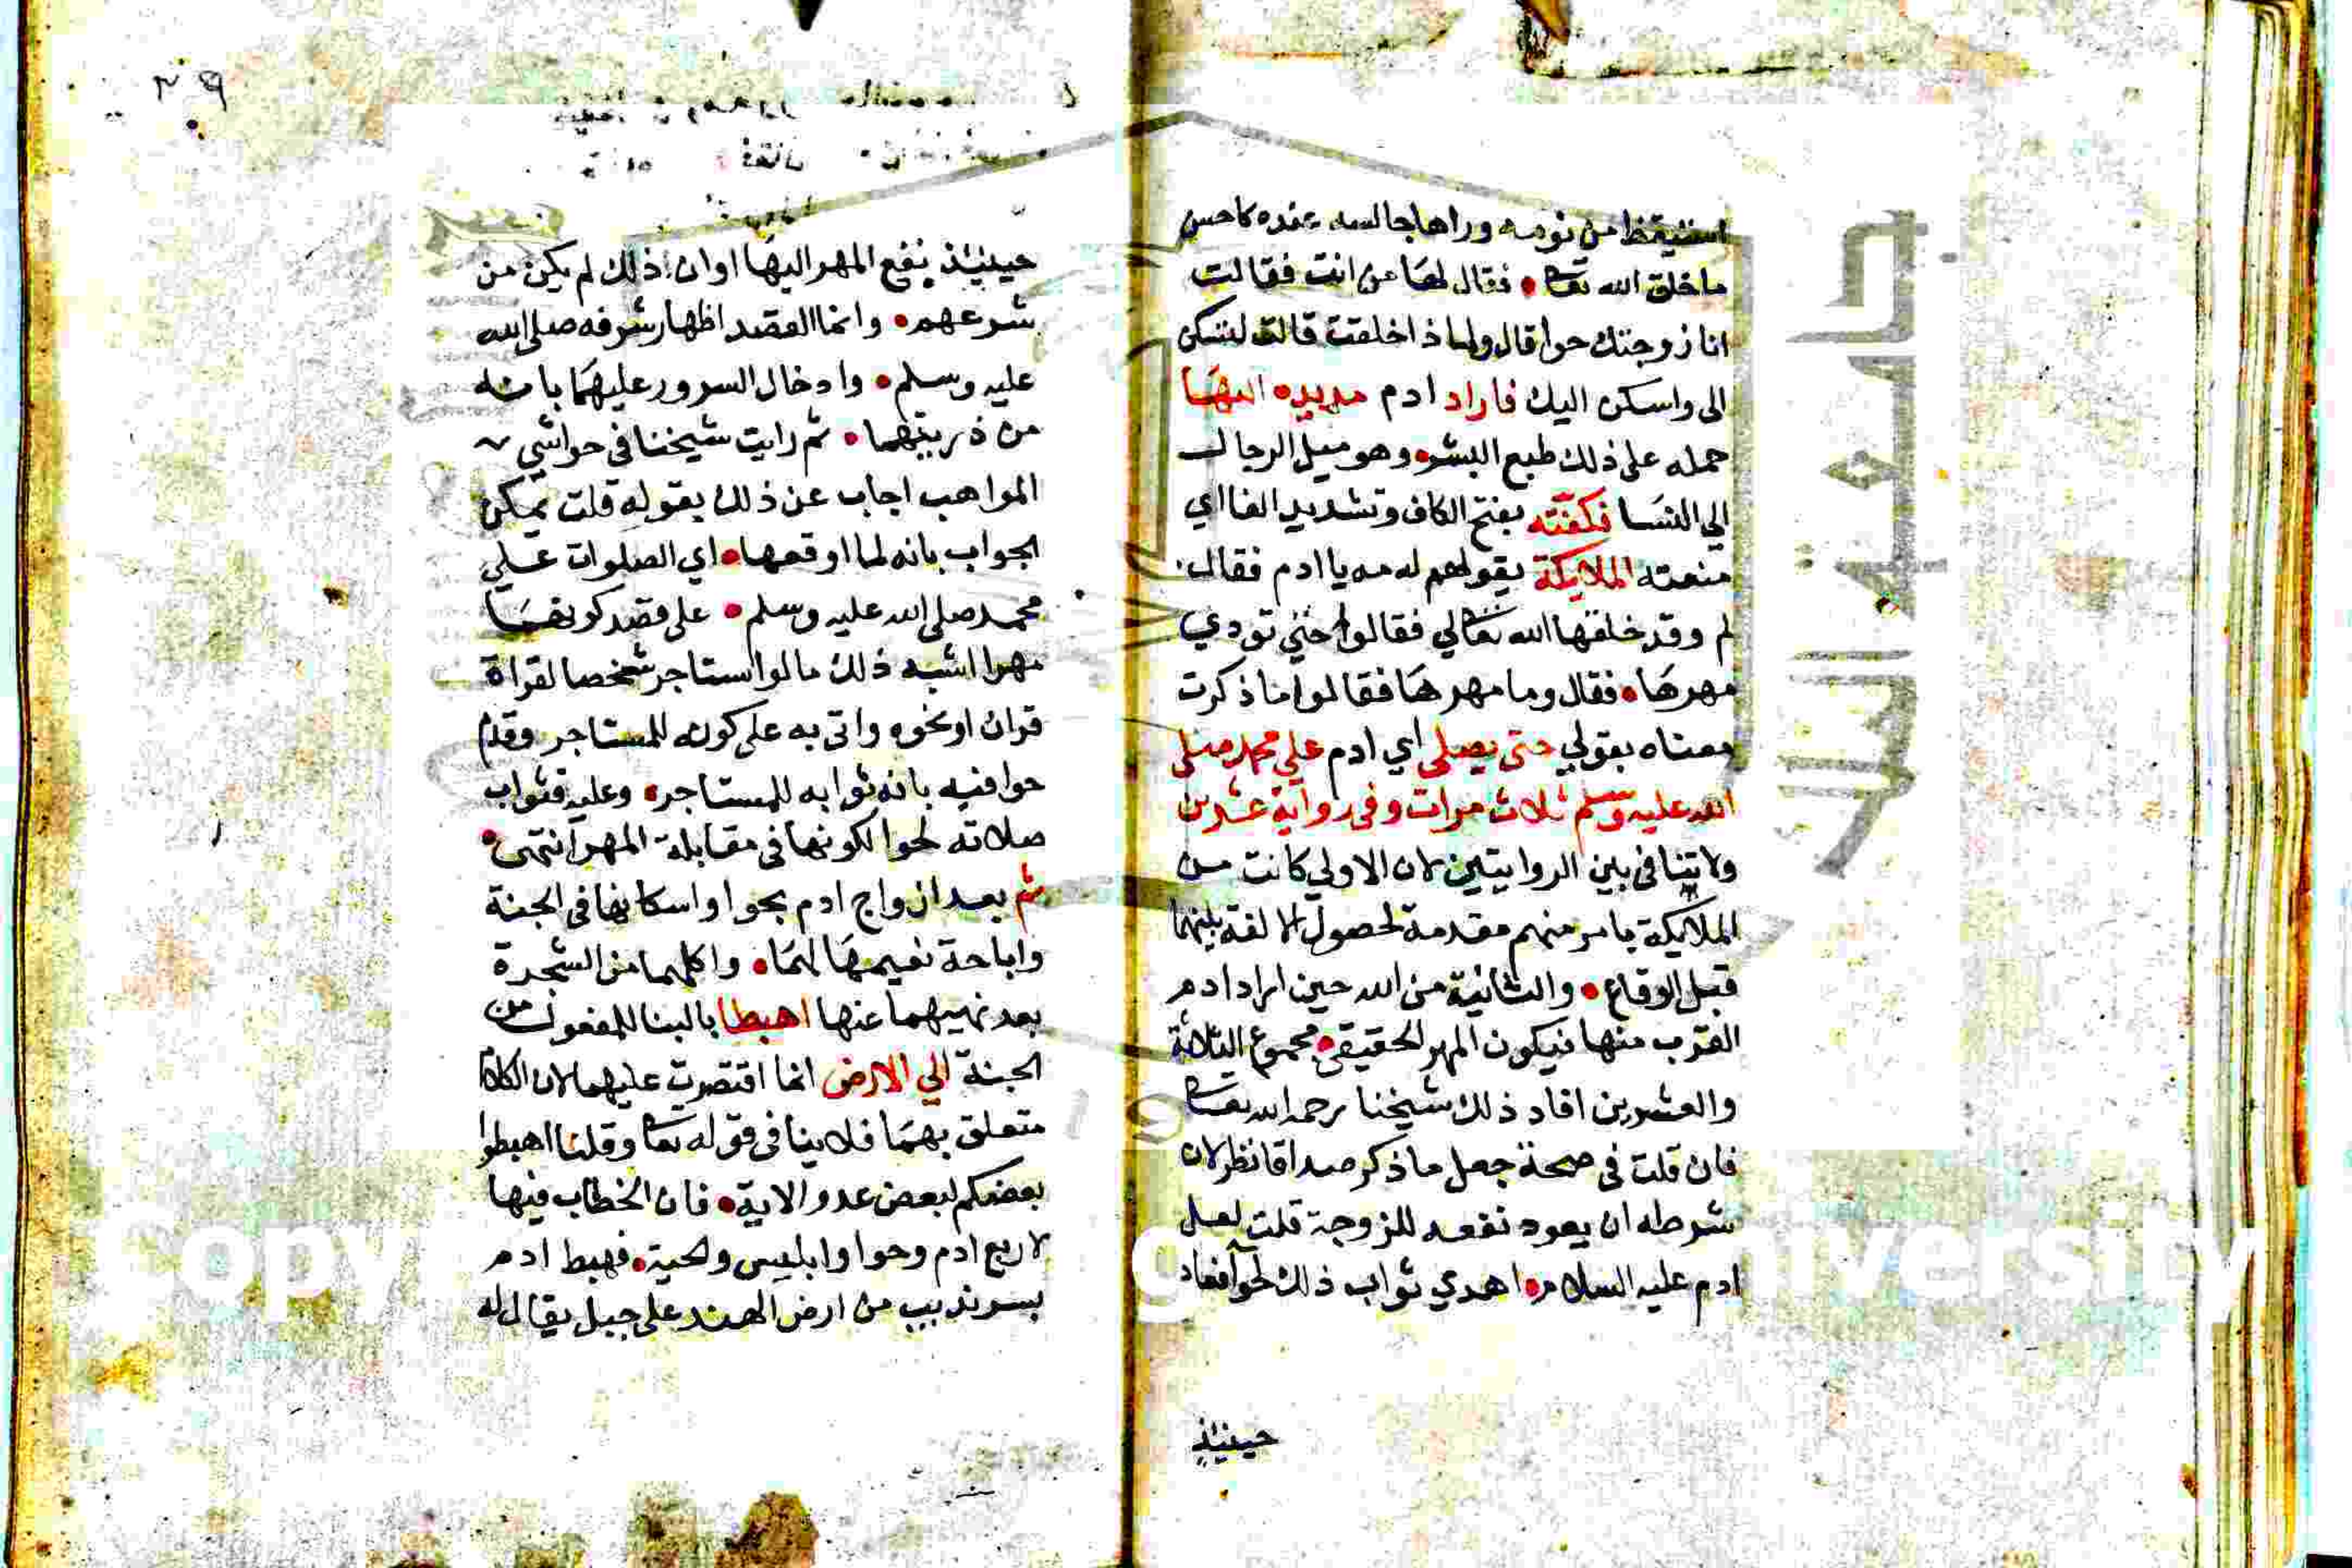 استيقظ من نومه وراها جالسه عنده كاحسن
ما خلق الله تعا • فقال لها من انت فقالت
انا زوجتك حوا قال ولماذا خلقت قالت لتسكن
الى واسكن اليك فاراد ادم مد يده اليها
حمله على ذلك طبع البشر • وهو ميل الرجال
الي النسا فكفته بفتح الكاف وتشديد الفا اي
منعته الملايكة بقولهم له مه يا ادم فقال
لم وقد خلقها الله تعالي فقالوا حتي تودي
مهرها • فقال وما مهرها فقالوا ما ذكرت
معناه بقولي حتى يصلى اي ادم علي محمد صلى
الله عليه وسلم ثلاث مرات وفى رواية عشرين
ولا تنافى بين الروايتين لان الاولي كانت من
الملايكة بامر منهم مقدمة لحصول الالفة بينهما
قبل الوقاع • والثانية من الله حين اراد ادم
القرب منها فيكون المهر الحقيقي • مجموع الثلاثة
والعشرين افاد ذلك شيخنا رحمه الله تعا
فان قلت فى صحة جعل ما ذكر صداقا نظر لان
شرطه ان يعود نفعه للزوجة قلت لعل
ادم عليه السلام • اهدي ثواب ذلك لحوا فعاد
حينئذ
٣٩
حينئذ نفع المهر اليها او ان ذلك لم يكن من
شرعهم • وانما القصد اظهار شرفه صلى الله
عليه وسلم • وادخال السرور عليهما بانه
من ذريتهما • ثم رايت شيخنا فى حواشي
المواهب اجاب عن ذلك بقوله قلت يمكن
الجواب بانه لما اوقعها • اي الصلوات علي
محمد صلى الله عليه وسلم • على قصد كونها
مهرا اشبه ذلك ما لو استاجر شخصا لقراة
قران او نحوه واتى به على كونه للمستاجر وقد
بانه ثوابه للمستاجر • وعليه فثواب
صلاته لحوا لكونها فى مقابلة المهر انتهى •
ثم بعد ازواج ادم بحوا واسكانها فى الجنة
واباحة نعيمها لهما • واكلهما من الشجرة
بعد نهيهما عنها اهبطا بالبنا للمفعول من
الجنة الي الارض انما اقتصرت عليهما لان الكلام
متعلق بهما فلا ينافى قوله تعا وقلنا اهبطوا
بعضكم لبعض عدو الاية • فان الخطاب فيها
لاربع ادم وحوا وابليس والحية • فهبط ادم
بسرنديب من ارض الهند على جبل يقال له